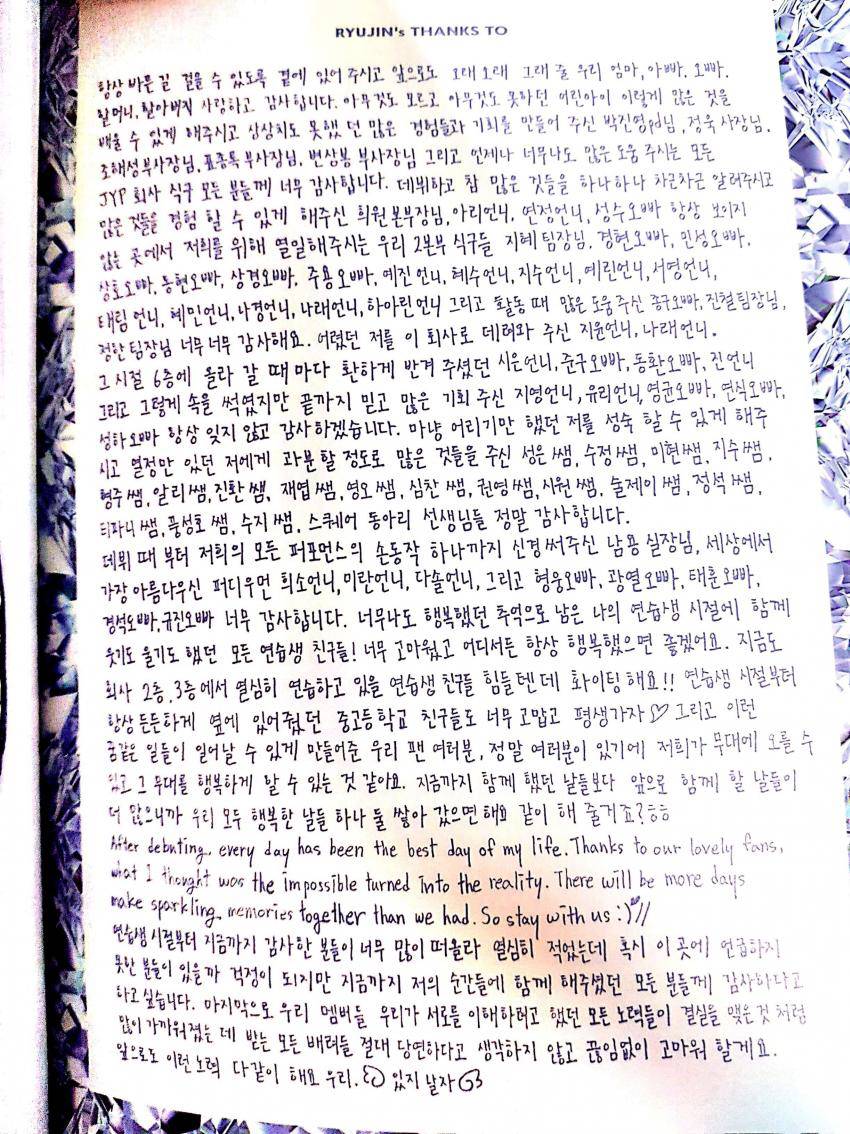 RYUJIN's THANKS TO
항상 바른길 걸을 수 있도록 곁에 있어 주시고 앞으로도 오래오래 그래 줄 우리 엄마, 아빠, 오빠.
할머니, 할아버지 사랑하고 감사합니다. 아무것도 모르고 아무것도 못하던 어린아이 이렇게 많은 것을
배울 수 있게 해주시고 상상치도 못했던 많은 경험들과 기회를 만들어 주신 박진영pd님, 정욱 사장님,
조해성부사장님, 표종록부사장님, 변상봉 부사장님 그리고 언제나 너무나도 많은 도움 주시는 모든
JYP 회사 식구 모든 분들께 너무 감사합니다. 데뷔하고 참 많은 것들을 하나하나 차근차근 알려주시고
많은 것들을 경험 할 수 있게 해주신 희원본부장님, 아리언니, 연정언니, 성수오빠 항상 보이지
않는 곳에서 저희를 위해 열일해주시는 우리 2본부 식구들 지혜팀장님, 경현오빠, 민성오빠,
상호오빠, 동현오빠, 상경오빠, 주용오빠, 예진언니, 혜수언니, 지수언니, 예린언니, 서영언니,
태림언니, 혜민언니, 나경언니, 나래언니, 하아린언니 그리고 활동때 많은 도움 주신 종구오빠, 진철팀장님,
정한팀장님 너무너무 감사해요. 어렸던 저를 이 회사로 데려와 주신 지윤언니, 나래언니.
그 시절 6층에 올라 갈 때 마다 환하게 반겨 주셨던 시은언니, 준구오빠, 동환오빠, 진언니
그리고 그렇게 속을 썩였지만 끝까지 믿고 많은 기회 주신 지영언니, 유리언니, 영균오빠, 연식오빠,
성하오빠 항상 잊지 않고 감사하겠습니다. 마냥 어리기만 했던 저를 성숙 할 수 있게 해주
시고 열정만 있던 저에게 과분할 정도로 많은 것들을 주신 성은쌤, 수정쌤, 미현쌤, 지수쌤,
형주쌤, 알리쌤, 진환쌤, 재엽쌤, 영오쌤, 심찬쌤, 권영쌤, 시원쌤, 술제이쌤, 정석쌤,
티파니쌤, 풍성호쌤, 수지쌤, 스퀘어 동아리 선생님들 정말 감사합니다.
데뷔 때 부터 저희의 모든 퍼포먼스의 손동작 하나까지 신경써주신 남용실장님, 세상에서
가장 아름다우신 퍼디우먼 희소언니, 미란언니, 다솔언니, 그리고 형웅오빠, 광열오빠, 태훈오빠,
경석오빠, 규진오빠 너무 감사합니다. 너무나도 행복했던 추억으로 남은 나의 연습생 시절에 함께
웃기도 울기도 했던 모든 연습생 친구들! 너무 고마웠고 어디서든 항상 행복했으면 좋겠어요. 지금도
회사 2층, 3층에서 열심히 연습하고 있을 연습생 친구들 힘들텐데 화이팅해요!! 연습생 시절부터
항상 든든하게 옆에 있어줬던 중고등학교 친구들도 너무 고맙고 평생가자♡ 그리고 이런
꿈같은 일들이 일어날 수 있게 만들어준 우리 팬 여러분, 정말 여러분이 있기에 저희가 무대에 오를 수
있고 그 무대를 행복하게 할 수 있는 것 같아요. 지금까지 함께 했던 날들보다 앞으로 함께 할 날들이
더 많으니까 우리 모두 행복한 날들 하나 둘 쌓아 갔으면 해요 같이 해 줄거죠?ㅎㅎ
After debuting, every day has been the best day of my life. Thanks to our lovely fans,
what I thought was the impossible turned into the reality. There will be more days
make sparkling memories together than we had. So stay with us :)//
연습생 시절부터 지금까지 감사한 분들이 너무 많이 떠올라 열심히 적었는데 혹시 이 곳에 언급하지
못한 분들이 있을까 걱정이 되지만 지금까지 저의 순간들에 함께 해주셨던 모든 분들께 감사하다고
하고 싶습니다. 마지막으로 우리 멤버들 우리가 서로를 이해하려고 했던 모든 노력들이 결실을 맺은것 처럼
많이 가까워졌는 데 받는 모든 배려들 절대 당연하다고 생각하지 않고 끊임없이 고마워 할게요.
앞으로도 이런 노력 다같이 해요 우리. 있지 날자